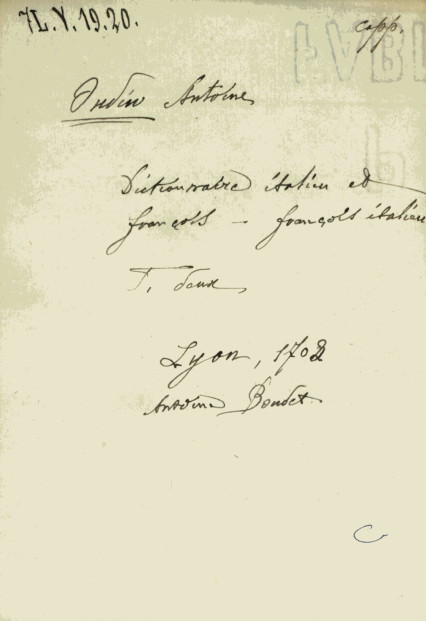 7L.Y.19.20.
copp.
Oudin Antoine
Dictionnaire italien et
françois – françois italien
T. deux
Lyon, 1702
Antoine Boudet
C